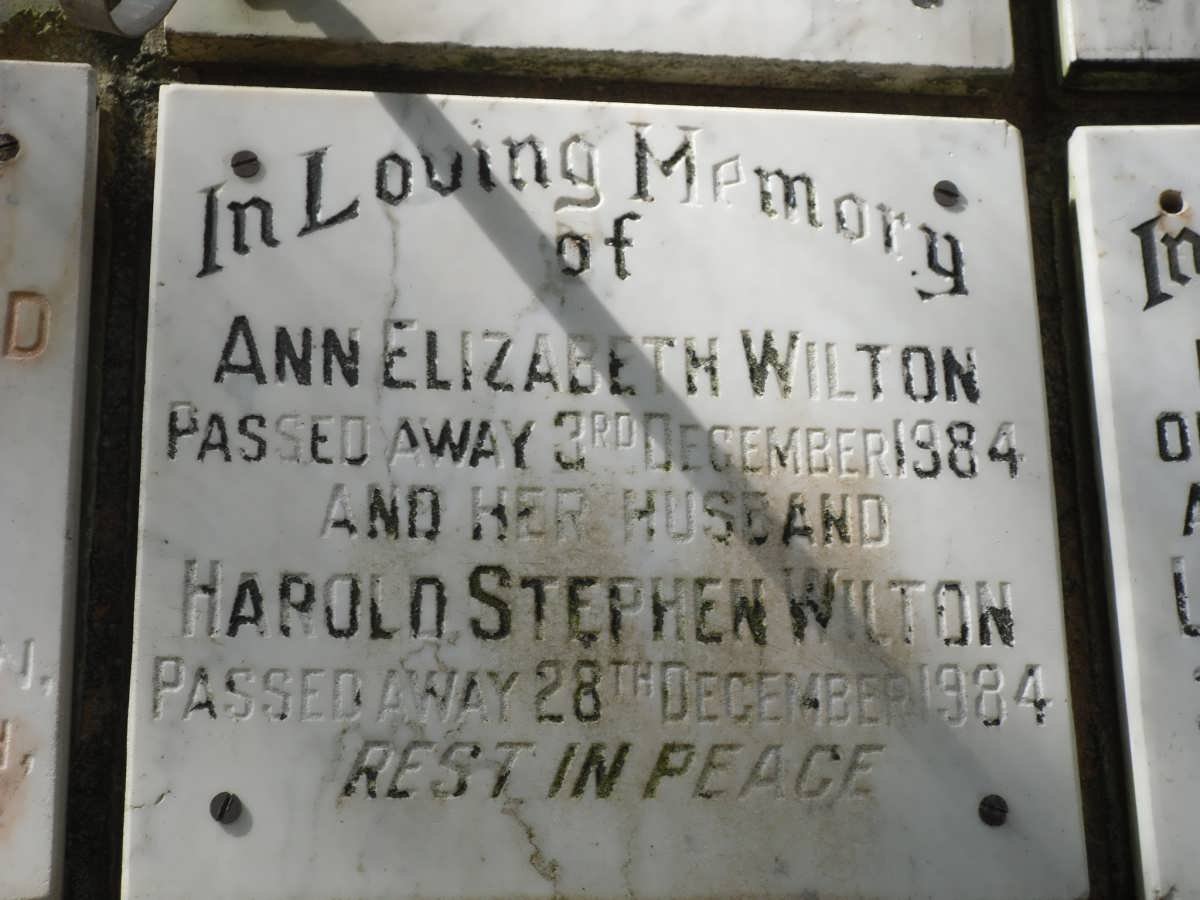 In Loving Memory
of
ANN ELIZABETH WILTON
PASSED AWAY 3RD DECEMBER 1984
AND HER HUSBAND
HAROLD STEPHEN WILTON
PASSED AWAY 28TH DECEMBER 1984
REST IN PEACE
In